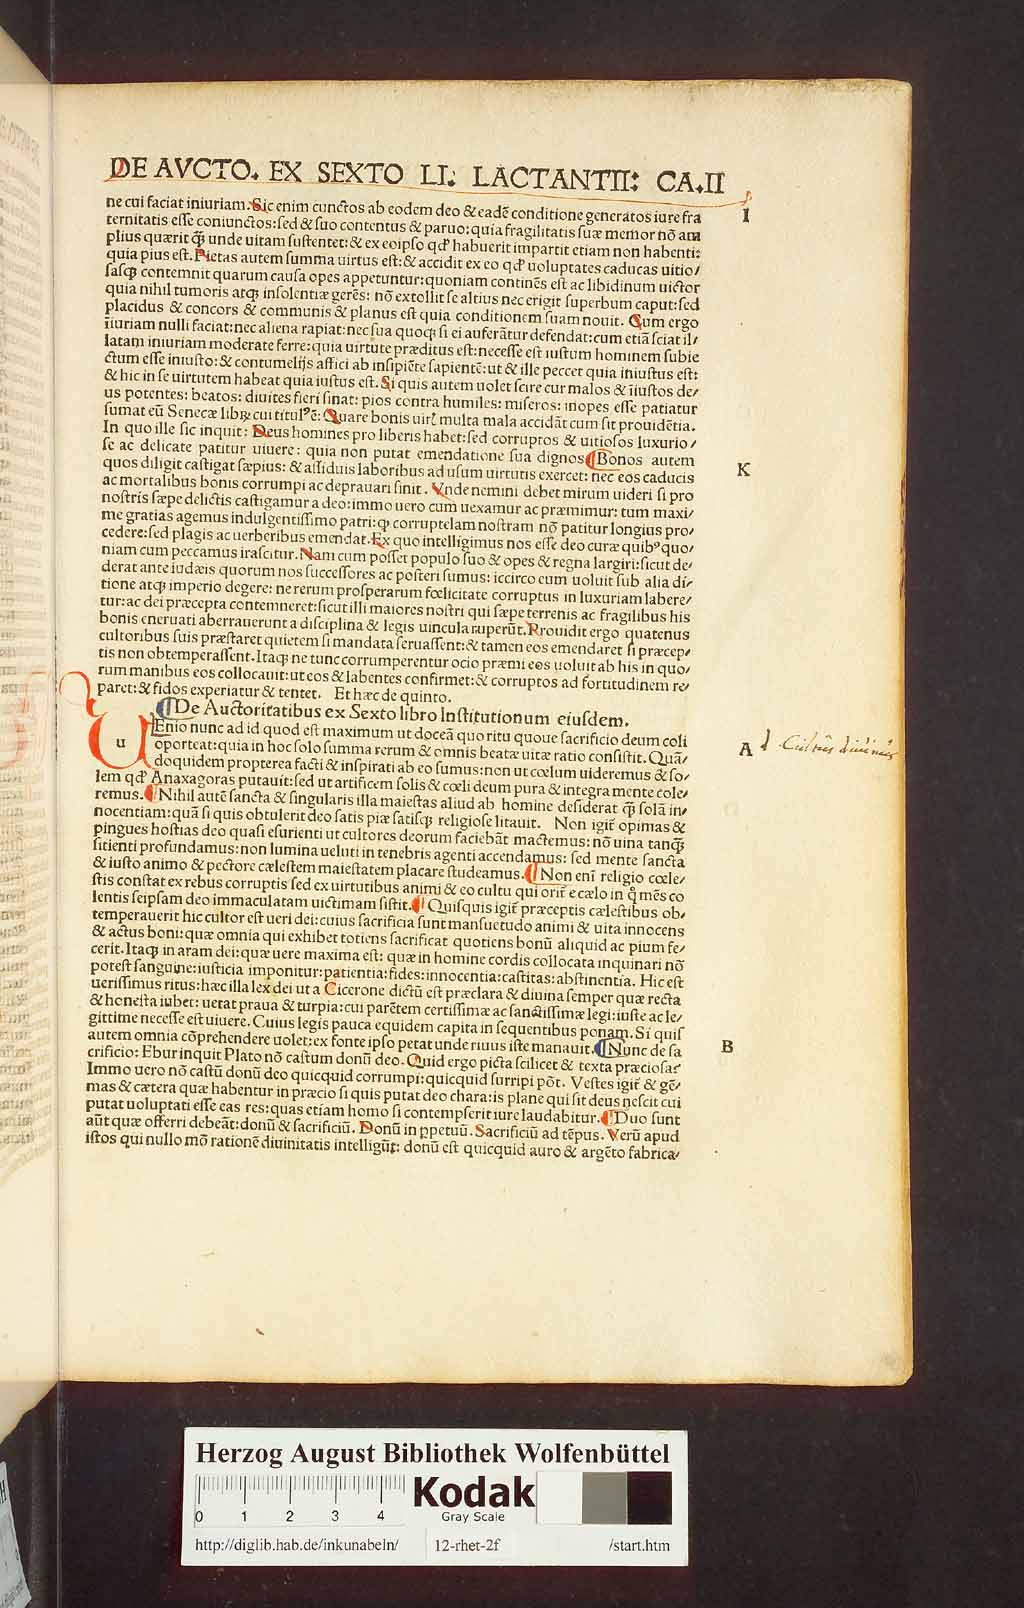 DE AVCTO. EX SEXTO LI. LACTANTII: CA.II
ne cui faciat iniuriam. Sic enim cunctos ab eodem deo & eadē conditione generatos iure fra
I
ternitatis esse coniunctos: sed & suo contentus & paruo: quia fragilitatis suæ memor nō am
plius quærit q̄ȝ unde uitam sustentet: & ex eo ipso qđ habuerit impartit etiam non habenti:
quia pius est. Pietas autem summa uirtus est: & accidit ex eo qđ uoluptates caducas uitio/
sasqȝ contemnit quarum causa opes appetuntur: quoniam continēs est ac libidinum uictor
quia nihil tumoris atqȝ insolentiæ gerēs: nō extollit se altius nec erigit superbum caput: sed
placidus & concors & communis & planus est quia conditionem suam nouit. Cum ergo
īiuriam nulli faciat: nec aliena rapiat: nec sua quoqȝ si ei auferātur defendat: cum etiā sciat il/
latam iniuriam moderate ferre: quia uirtute præditus est: necesse est iustum hominem subie
ctum esse iniusto: & contumelijs affici ab insipiēte sapientē: ut & ille peccet quia iniustus est:
& hic in se uirtutem habeat quia iustus est. Si quis autem uolet scire cur malos & īiustos de/
us potentes: beatos: diuites fieri sinat: pios contra humiles: miseros: inopes esse patiatur
sumat eū Senecæ libꝝ cui titulꝰ ē: Quare bonis uirꝭ multa mala accidāt cum sit prouidētia.
In quo ille sic inquit: Deus homines pro liberis habet: sed corruptos & uitiosos luxurio/
se ac delicate patitur uiuere: quia non putat emendatione sua dignos ¶ Bonos autem
K
quos diligit castigat sæpius: & assiduis laboribus ad usum uirtutis exercet: nec eos caducis
ac mortalibus bonis corrumpi ac deprauari sinit. Vnde nemini debet mirum uideri si pro
nostris sæpe delictis castigamur a deo: immo uero cum uexamur ac præmimur: tum maxi/
me gratias agemus indulgentissimo patri: qȝ corruptelam nostram nō patitur longius pro/
cedere: sed plagis ac uerberibus emendat. Ex quo intelligimus nos esse deo curæ quibꝰ quo/
niam cum peccamus irascitur. Nam cum posset populo suo & opes & regna largiri: sicut de/
derat ante iudæis quorum nos successores ac posteri sumus: iccirco eum uoluit sub alia di/
tione atqȝ imperio degere: ne rerum prosperarum fœlicitate corruptus in luxuriam labere/
tur: ac dei præcepta contemneret: sicut illi maiores nostri qui sæpe terrenis ac fragilibus his
bonis eneruati aberrauerunt a disciplina & legis uincula ruperūt. Prouidit ergo quatenus
cultoribus suis præstaret quietem si mandata seruassent: & tamen eos emendaret si præcep/
tis non obtemperassent. Itaqȝ ne tunc corrumperentur ocio præmi eos uoluit ab his in quo/
rum manibus eos collocauit: ut eos & labentes confirmet: & corruptos ad fortitudinem re/
paret: & fidos experiatur & tentet. Et hæc de quinto.
¶ De Auctoritatibus ex Sexto libro Institutionum eiusdem.
u
VEnio nunc ad id quod est maximum ut doceā quo ritu quoue sacrificio deum coli
A
Cultus diuinus
oporteat: quia in hoc solo summa rerum & omnis beatæ uitæ ratio consistit. Quā/
doquidem propterea facti & inspirati ab eo sumus: non ut cœlum uideremus & so/
lem qđ Anaxagoras putauit: sed ut artificem solis & cœli deum pura & integra mente cole/
remus. ¶ Nihil autē sancta & singularis illa maiestas aliud ab homine desiderat q̄ȝ solā in/
nocentiam: quā si quis obtulerit deo satis piæ satisqȝ religiose litauit. Non igit̄ opimas &
pingues hostias deo quasi esurienti ut cultores deorum faciebāt mactemus: nō uina tanq̄ȝ
sitienti profundamus: non lumina ueluti in tenebris agenti accendamus: sed mente sancta
& iusto animo & pectore cælestem maiestatem placare studeamus. ¶ Non enī religio cœle/
stis constat ex rebus corruptis sed ex uirtutibus animi & eo cultu qui orit̄ e cælo in q̊ mēs cœ
lentis seipsam deo immaculatam uictimam sistit. ¶ Quisquis igit̄ præceptis cælestibus ob/
temperauerit hic cultor est ueri dei: cuius sacrificia sunt mansuetudo animi & uita innocens
& actus boni: quæ omnia qui exhibet totiens sacrificat quotiens bonū aliquid ac pium fe/
cerit. Itaqȝ in aram dei: quæ uere maxima est: quæ in homine cordis collocata inquinari nō
potest sanguine: iusticia imponitur: patientia: fides: innocentia: castitas: abstinentia. Hic est
uerissimus ritus: hæc illa lex dei ut a Cicerone dictū est præclara & diuina semper quæ recta
& honesta iubet: uetat praua & turpia: cui parētem certissimæ ac sanctissimæ legi: iuste ac le/
gittime necesse est uiuere. Cuius legis pauca equidem capita in sequentibus ponam. Si quis
autem omnia cōprehendere uolet: ex fonte ipso petat unde riuus iste manauit. ¶ Nunc de sa
B
crificio: Ebur inquit Plato nō castum donū deo. Quid ergo picta scilicet & texta præciosa?
Immo uero nō castū donū deo quicquid corrumpi: quicquid surripi pōt. Vestes igit̄ & gē/
mas & cætera quæ habentur in præcio si quis putat deo chara: is plane qui sit deus nescit cui
putat uoluptati esse eas res: quas etiam homo si contempserit iure laudabitur. ¶ Duo sunt
aūt quæ offerri debeāt: donū & sacrificiū. Donū in ꝑpetuū. Sacrificiū ad tēpus. Verū apud
istos qui nullo mō rationē diuinitatis intelligūt: donū est quicquid auro & argēto fabrica/
Herzog August Bibliothek Wolfenbüttel
0 1 2 3 4
Kodak
Gray Scale
http://diglib.hab.de/inkunabeln/ 12-rhet-2f /start.htm